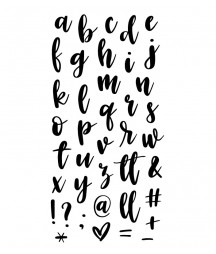 a b c d e
f g h i j
k l m n
o p q r s
t u v w
x y z tt &
! ? ; @ ll #
* ♡ = + -